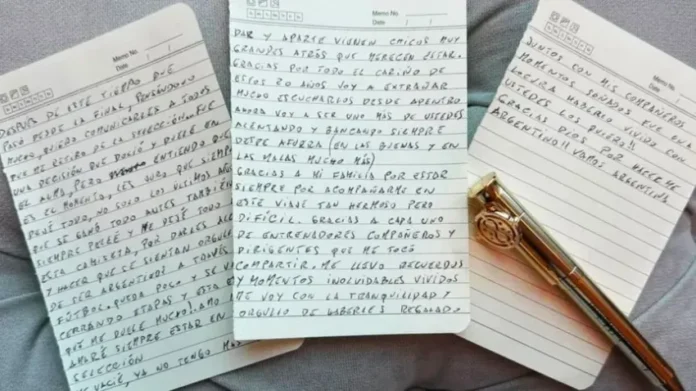 Memo No.
Date / /
DESPUES DE ESTE TIEMPO QUE
PASO DESDE LA FINAL, PENSANDOLO
MUCHO, QUIERO COMUNICARLES A TODOS
QUE ME RETIRO DE LA SELECCION. FUE
UNA DECISION QUE DOLIO Y DUELE EN
EL ALMA, PERO ENTIENDO QUE
ES EL MOMENTO, LES JURO QUE SIEMP
DEJE TODO, NO SOLO LOS ULTIMOS AÑOS
QUE SE GANO TODO ANTES TAMBIEN
SIEMPRE PELEE Y ME DEJE TODO
ESTA CAMISETA, POR DARLES ALE
Y HACER QUE SE SIENTAN ORGULL
DE SER ARGENTINOS A TRAVES
FUTBOL. QUEDA POCO Y SE V
CERRANDO ETAPAS Y ESTA ES
QUE ME DUELE MUCHO! AMO
AMARE SIEMPRE ESTAR EN
SELECCION
VACIE, YA NO TENGO MAS
Memo No.
Date / /
DAR Y APARTE VIENEN CHICOS MUY
GRANDES ATRAS QUE MERECEN ESTAR.
GRACIAS POR TODO EL CARIÑO DE
ESTOS 20 AÑOS VOY A EXTRAÑAR
MUCHO ESCUCHARLOS DESDE ADENTRO
AHORA VOY A SER UNO MAS DE USTEDES
ALENTANDO Y BANCANDO SIEMPRE
DESDE AFUERA (EN LAS BUENAS Y EN
LAS MALAS MUCHO MAS)
GRACIAS A MI FAMILIA POR ESTAR
SIEMPRE POR ACOMPAÑARME EN
ESTE VIAJE TAN HERMOSO PERO
DIFICIL. GRACIAS A CADA UNO
DE ENTRENADORES COMPAÑEROS Y
DIRIGENTES QUE ME TOCO
COMPARTIR. ME LLEVO RECUERDOS
Y MOMENTOS INOLVIDABLES VIVIDOS
ME VOY CON LA TRANQUILIDAD Y
ORGULLO DE HABERLES REGALADO
Memo No.
Date / /
JUNTOS CON MIS COMPAÑEROS
MOMENTOS SOÑADOS FUE UNA
LOCURA HABERLO VIVIDO CON
USTEDES LOS QUIERO!!
GRACIAS DIOS POR HACERME
ARGENTINO!! VAMOS ARGENTINA